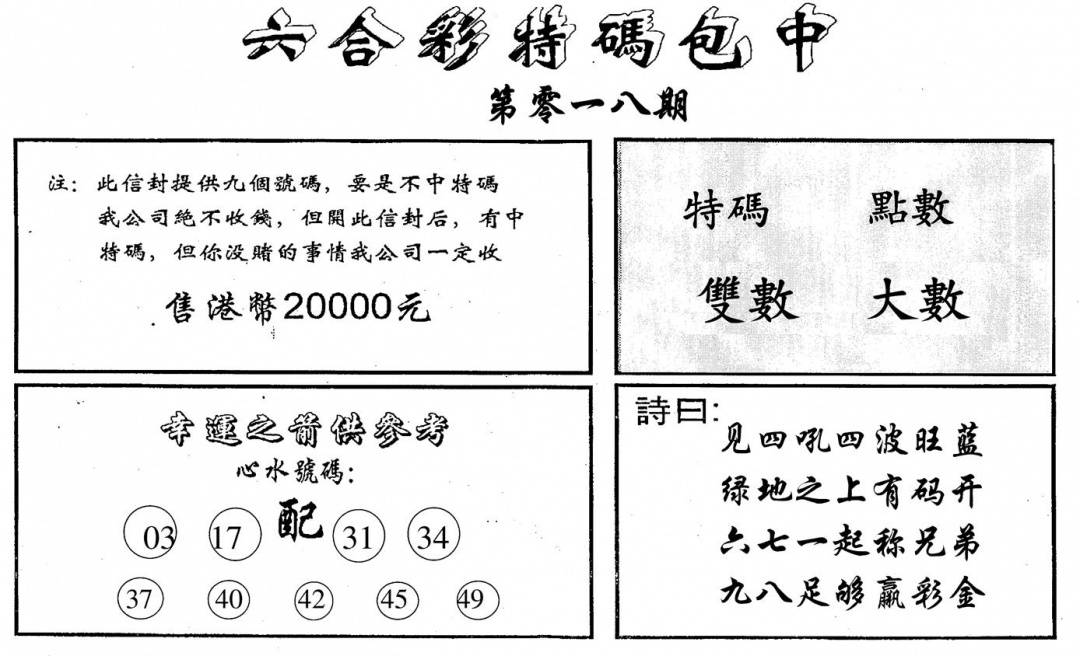 六合彩特碼包中
第零一八期
注：此信封提供九個號碼，要是不中特碼
我公司絕不收錢，但開此信封后，有中
特碼，但你没賭的事情我公司一定收
售港幣20000元
特碼 點數
雙數 大數
幸運之箭供參考
心水號碼：
03 17 配 31 34
37 40 42 45 49
詩曰：
见四吼四波旺蓝
绿地之上有码开
六七一起称兄弟
九八足够赢彩金